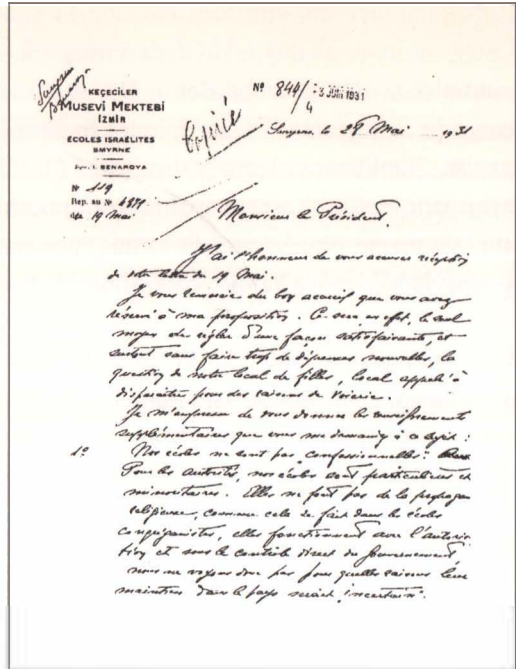 Smyrne
KEÇECİLER
MUSEVİ MEKTEBİ
İZMİR
ÉCOLES ISRAÉLITES
SMYRNE
I. BENAROYA
Nº 119
Rep. au Nº
du 19 Mai
Nº 844/4
3 JUIN 1931
Copié
Smyrne, le 28 Mai 1931
Monsieur le Président,
J'ai l'honneur de vous accuser réception
de votre lettre du 19 Mai.
Je vous remercie du bon accueil que vous avez
réservé à ma proposition. Ce sera en effet, le seul
moyen de régler d'une façon satisfaisante, et
surtout sans faire trop de dépenses nouvelles, la
question de notre local de filles, local appelé à
disparaître pour des raisons de voierie.
Je m'empresse de vous donner les renseignements
supplémentaires que vous me demandez à ce sujet :
1º Nos écoles ne sont pas "confessionnelles".
Pour les autorités, nos écoles sont particulières et
minoritaires. Elles ne font pas de la propagan
religieuse, comme cela se fait dans les écoles
congréganistes, elles fonctionnent avec l'autorisa
tion et sous le contrôle direct du Gouvernement
nous ne voyons donc pas pour quelles raisons leur
maintien dans le pays serait "incertain".